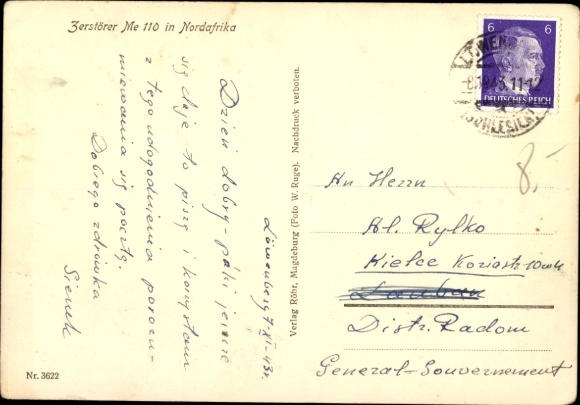 Zerstörer Me 110 in Nordafrika
Löwenberg 7-XI-43r.
Dzień dobry - póki jeszcze
się daje to piszę i korzystam
z tego udogodnienia porozu-
miewania się pocztą.
Dobrego zdrówka
Verlag Röhr, Magdeburg (Foto W. Ruge). Nachdruck verboten.
Nr. 3622
6 6
DEUTSCHES REICH
11-12
(SCHLESIEN)
8.-
An Herrn
Al. Rylko
Kielce
Lauban
Distr. Radom
General-Gouvernement